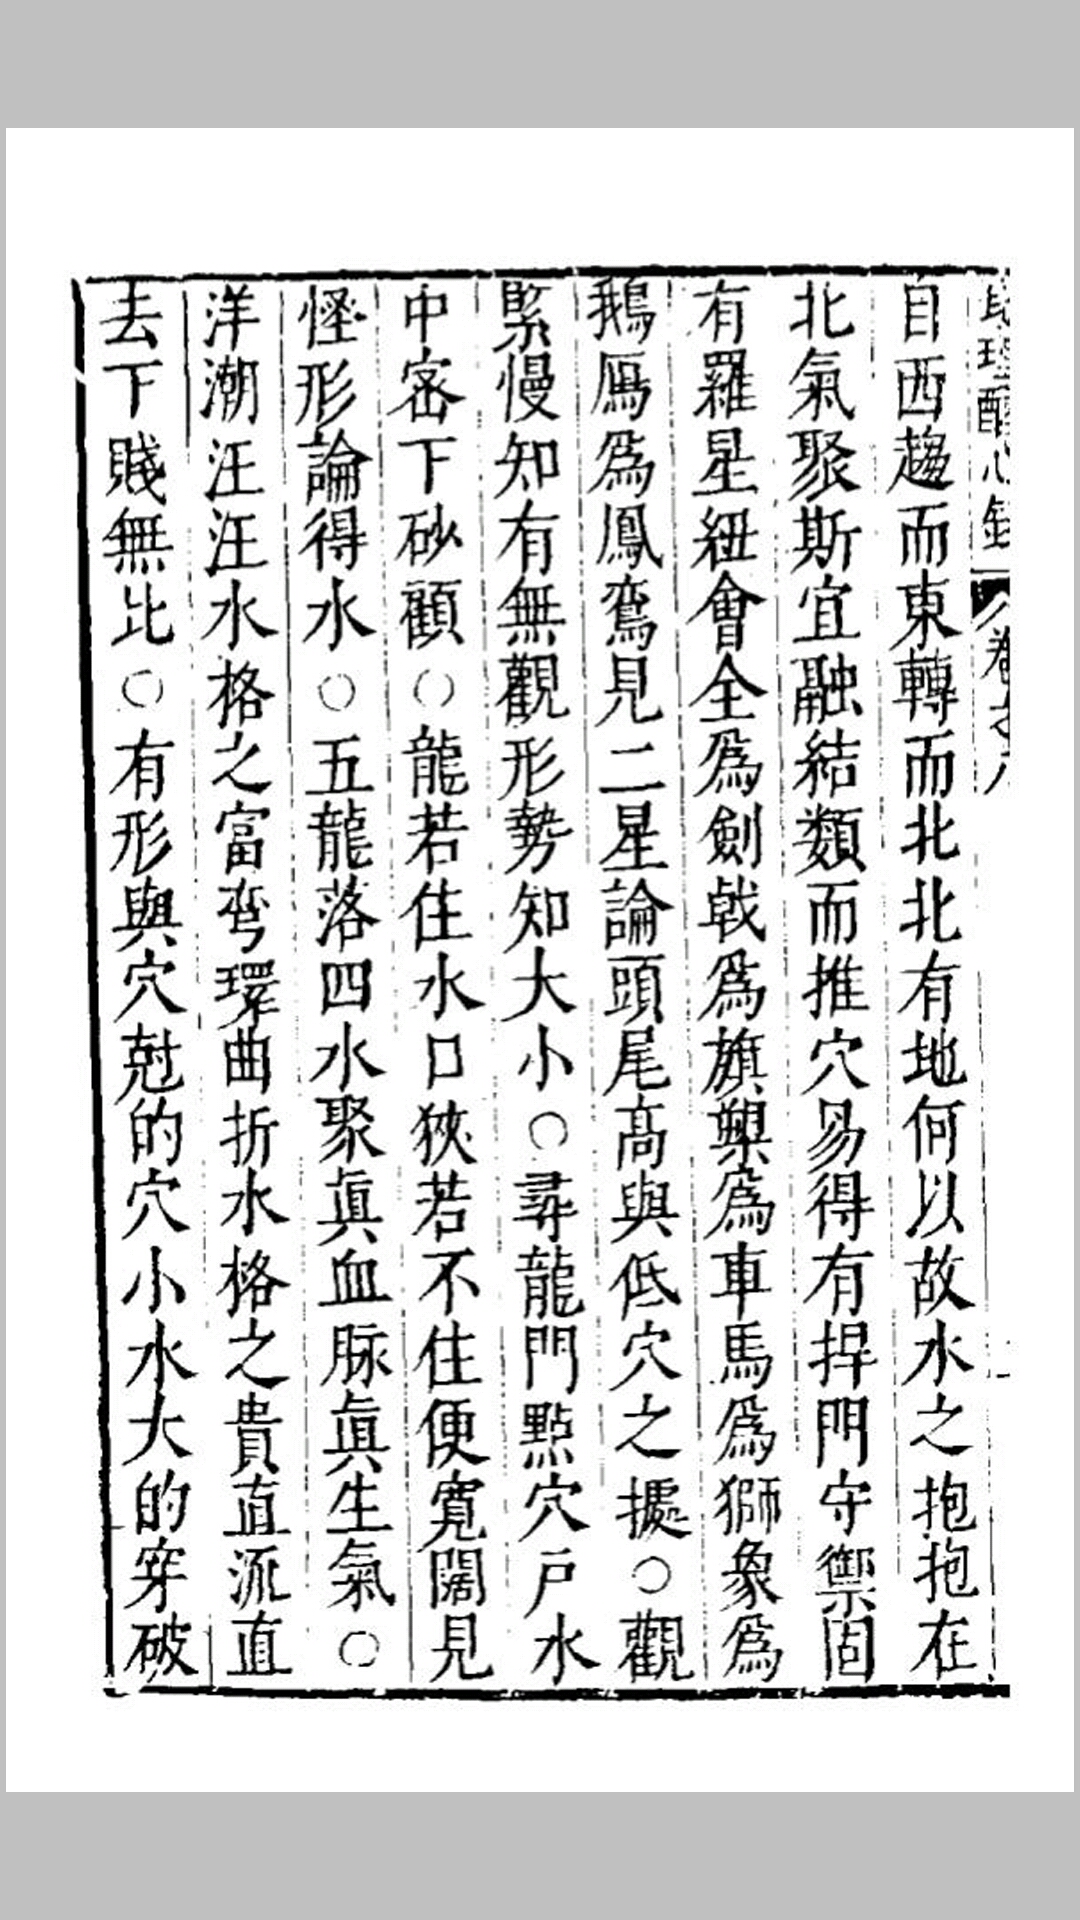 心
卷
自西趨而東轉而北北有地何以故水之抱抱在
北氣聚斯宜融結類而推穴易得有捍門守禦固
有羅星紐會全為劍戟為旗槊為車馬為獅象為
鵝鴈為鳳鸞見二星論頭尾高與低穴之據○觀
緊慢知有無觀形勢知大小○尋龍門點穴戶水
中密下砂顧○龍若住水口狹若不住便寬闊見
怪形論得水○五龍落四水聚眞血脉眞生氣○
洋潮汪汪水格之富弯環曲折水格之貴直流直
去下賤無比○有形與穴尅的穴小水大的穿破